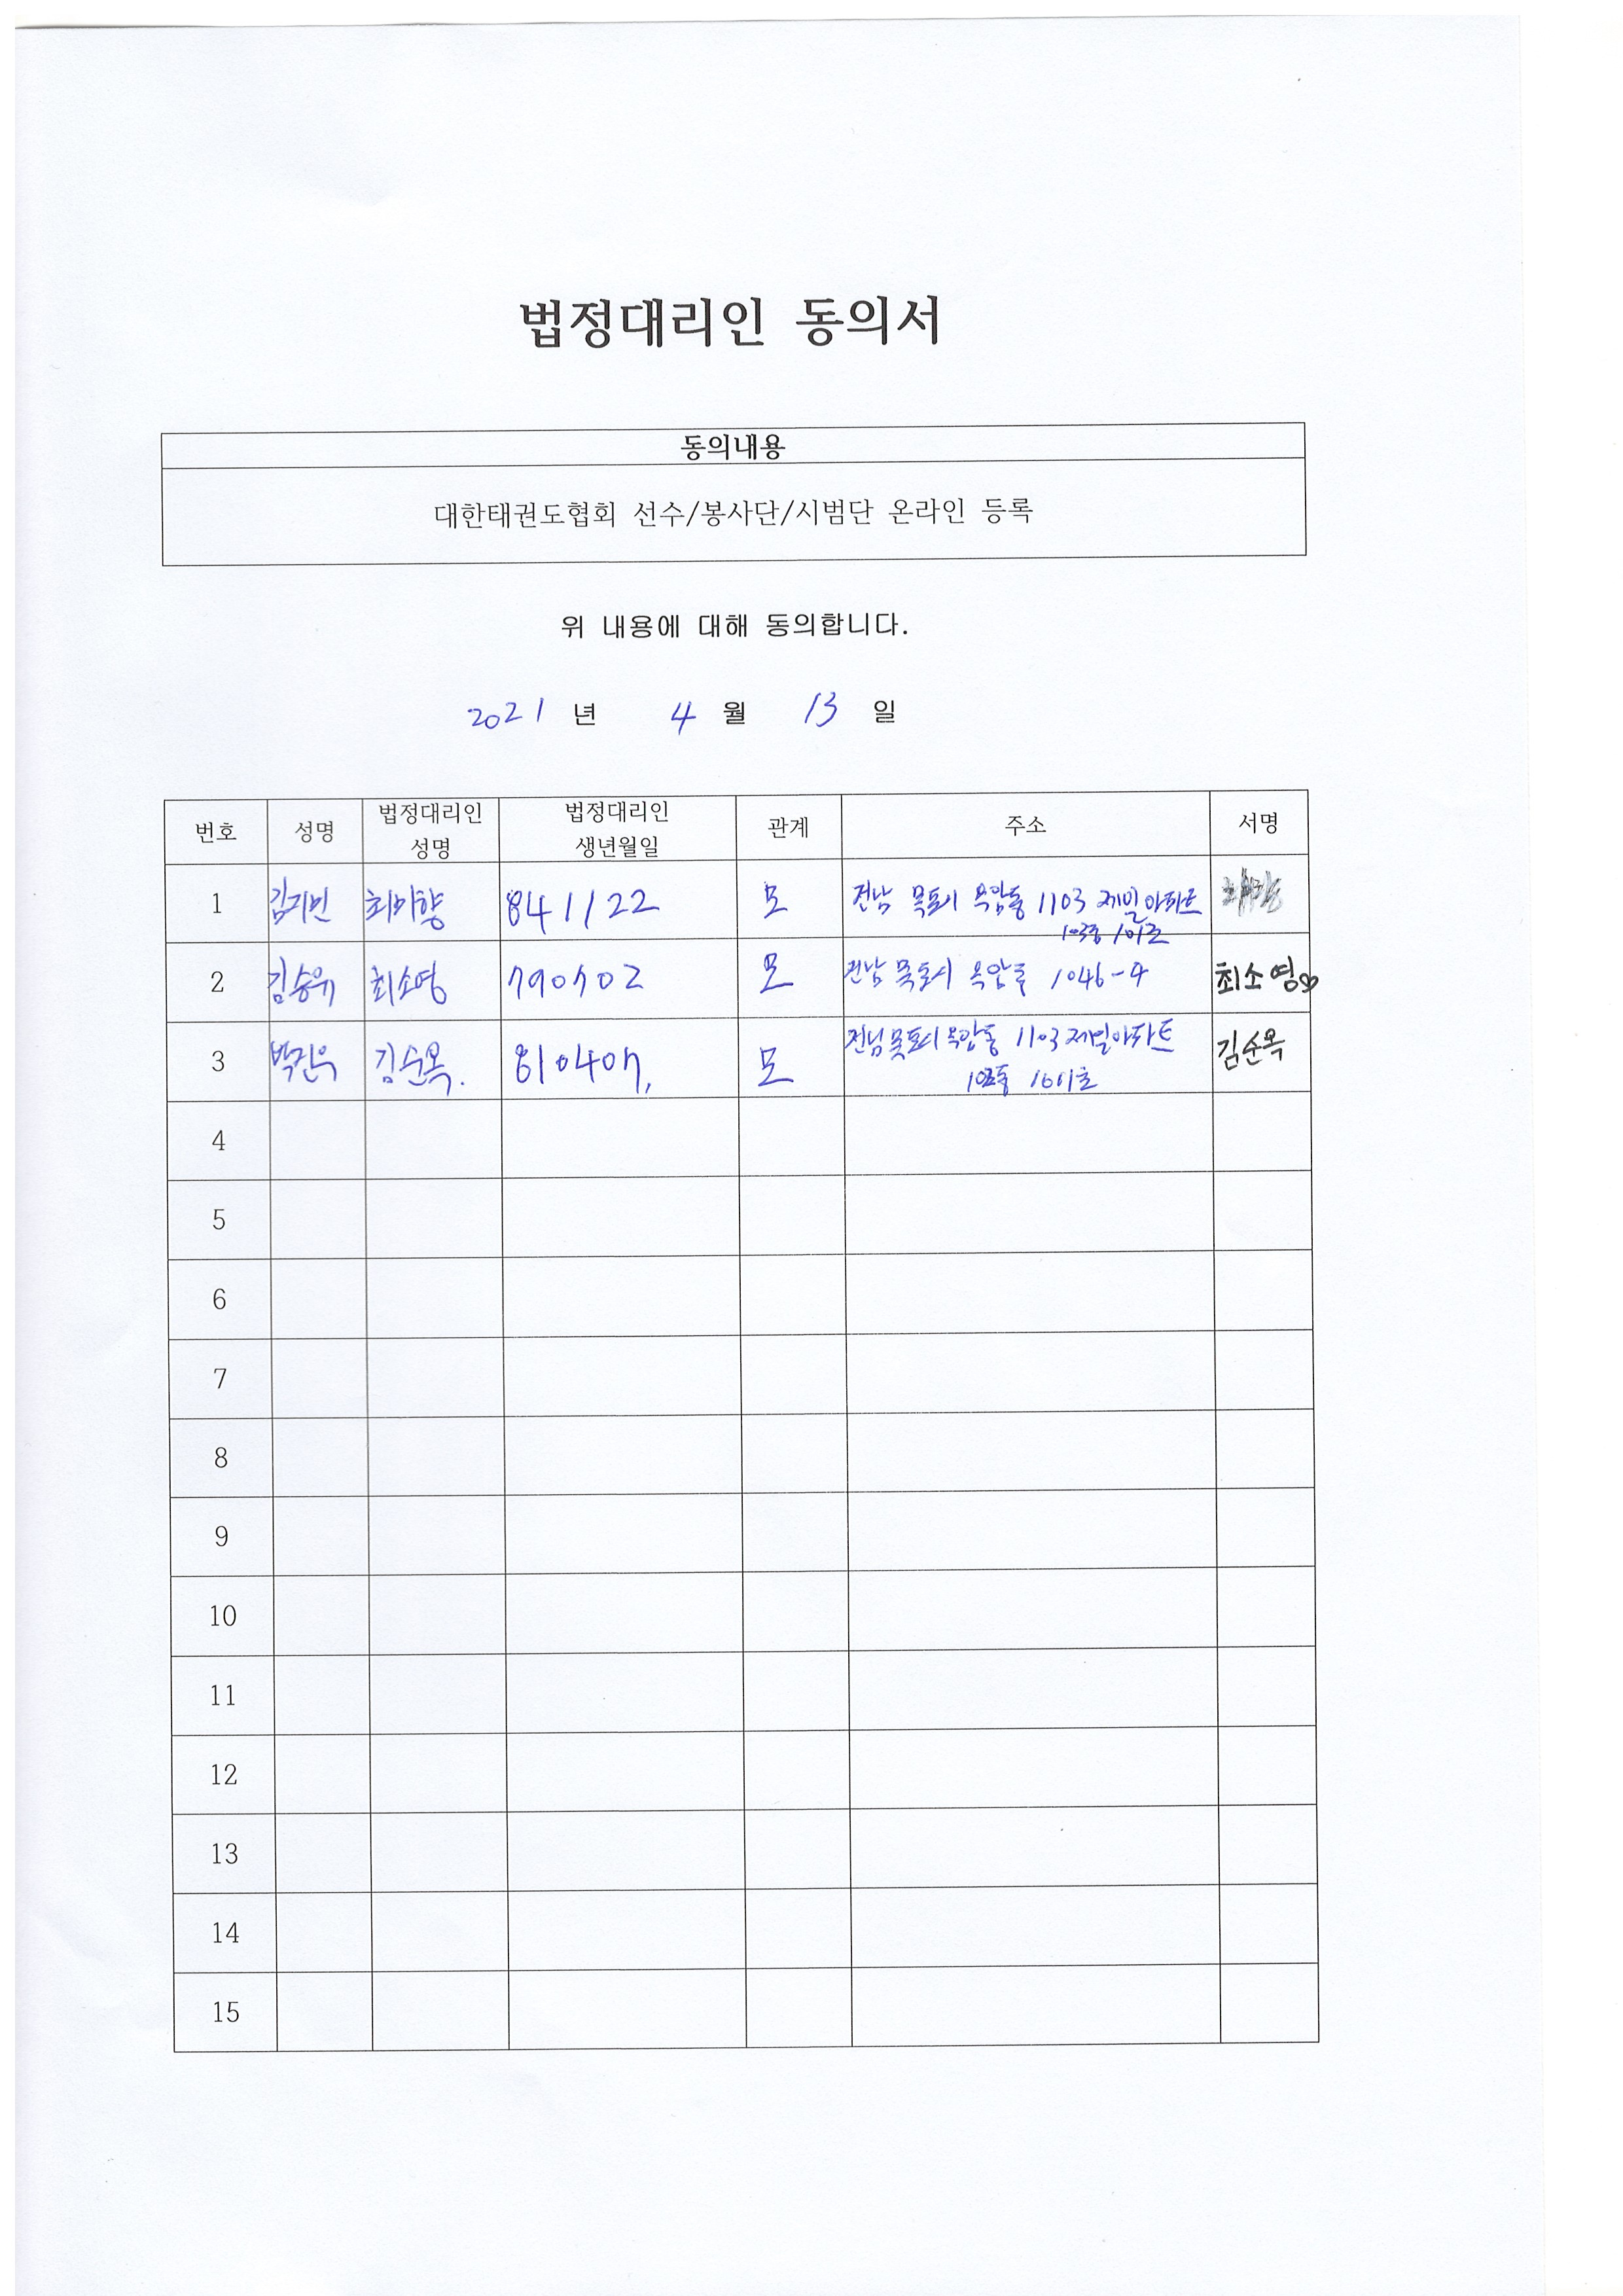 법정대리인 동의서
동의내용
대한태권도협회 선수/봉사단/시범단 온라인 등록
위 내용에 대해 동의합니다.
2021 년 4 월 13 일
번호 성명 법정대리인 성명 법정대리인 생년월일 관계 주소 서명
1 김지민 최미향 841122 모 전남 목포시 옥암동 1103 제일아파트
103동
2 김승유 최소영 790702 모 전남 목포시 옥암동 1046-4 최소영
3 박진우 김순옥. 810407, 모 전남 목포시 옥암동 1103 제일아파트 김순옥
1601호
4
5
6
7
8
9
10
11
12
13
14
15